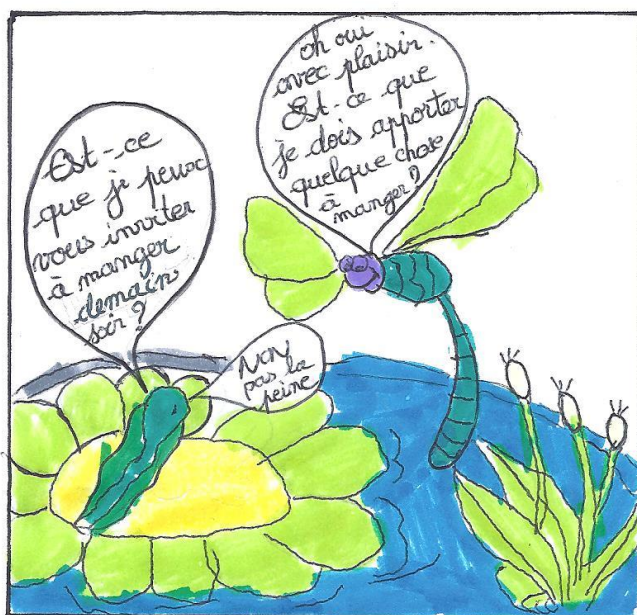 Est-ce
que je peux
vous inviter
à manger
demain
soir ?
oh oui
avec plaisir.
Est-ce que
je dois apporter
quelque chose
à
manger ?
NON
pas la
peine